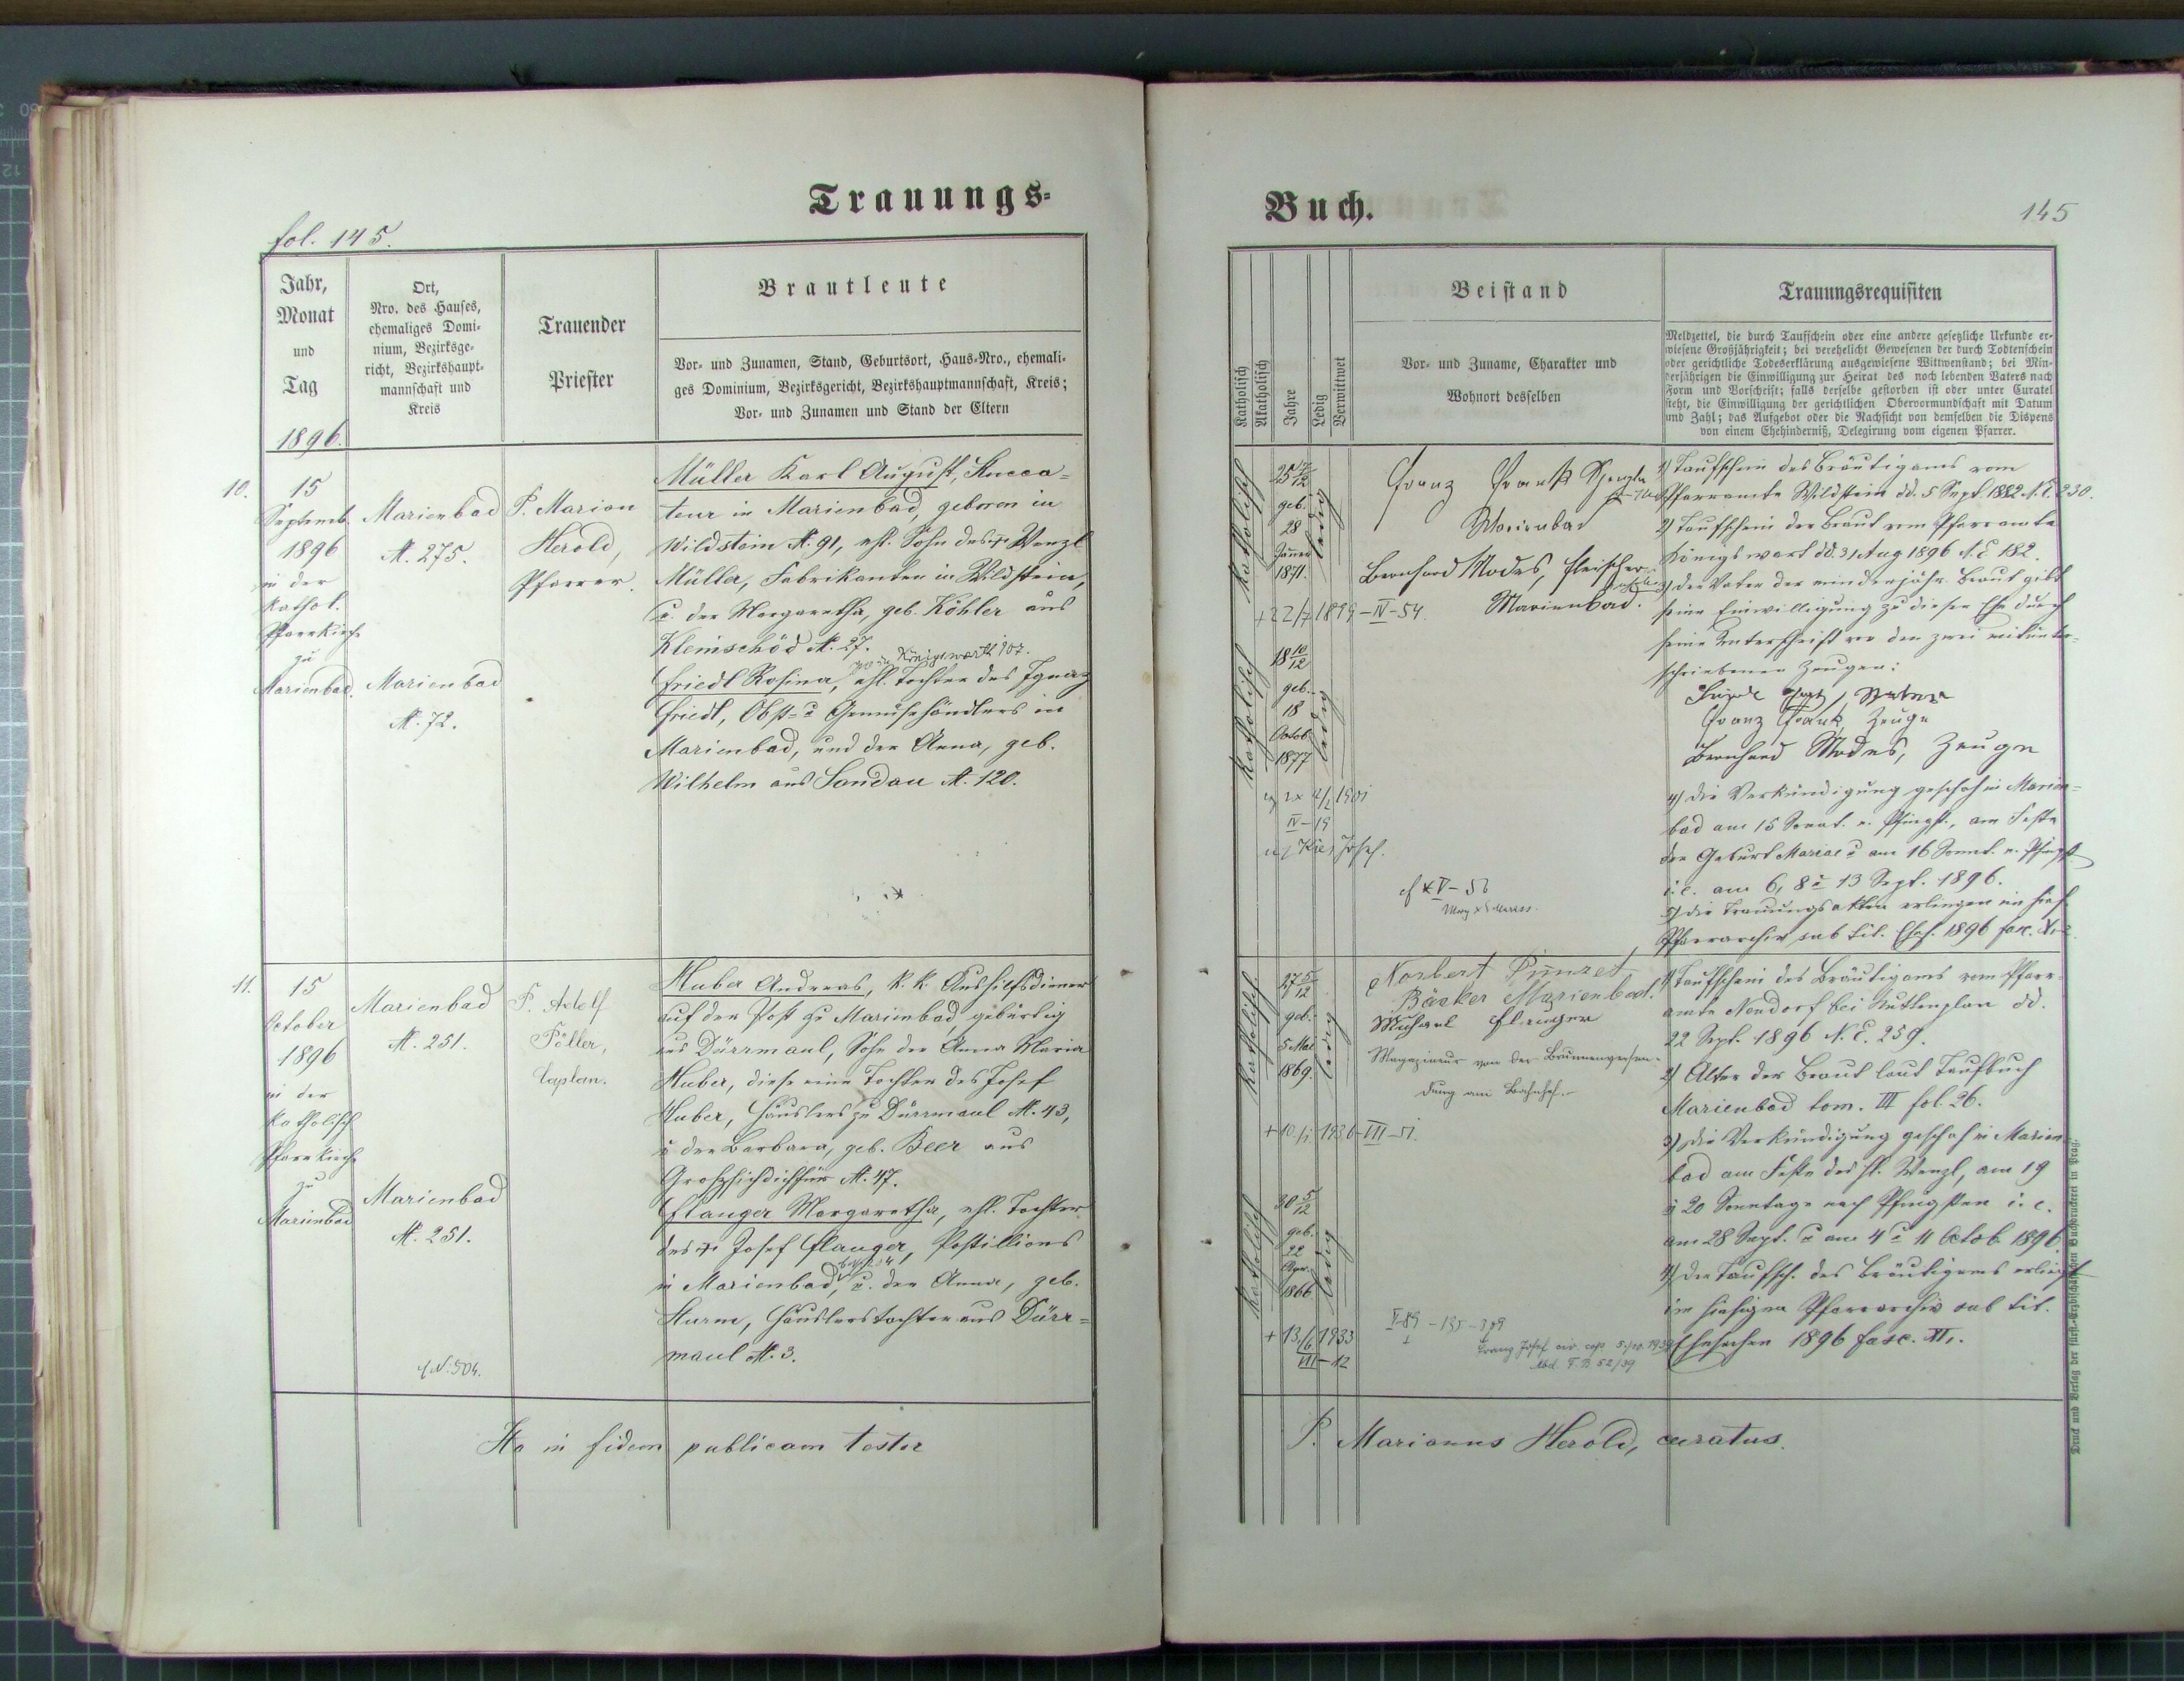 Trauungs-
fol. 145.
Jahr,
Monat
und
Tag
1896.
Ort,
Nro. des Hauses,
ehemaliges Domi-
nium, Bezirksge-
richt, Bezirkshaupt-
mannschaft und
Kreis
Trauender
Priester
Brautleute
Vor- und Zunamen, Stand, Geburtsort, Haus-Nro., ehemali-
ges Dominium, Bezirksgericht, Bezirkshauptmannschaft, Kreis;
Vor- und Zunamen und Stand der Eltern
10.
15
Septemb.
1896
in der
kathol.
Pfarrkirche
zu
Marienbad.
Marienbad
N. 275.
Marienbad
N. 72.
P. Marian
Herold,
Pfarrer.
Müller Karl August, Stucca-
teur in Marienbad, geboren in
Wildstein N. 91, ehl. Sohn des † Wenzl
Müller, Fabrikanten in Wildstein,
u. der Margaretha, geb. Köhler aus
Kleinschöd N. 27.
Königswarth 107.
Friedl Rosina, ehl. Tochter des Ignaz
Friedl, Obst- u. Gemüsehändlers in
Marienbad, und der Anna, geb.
Wilhelm aus Sandau N. 120.
11.
15
October
1896
in der
katholisch
Pfarrkirche
zu
Marienbad
Marienbad
N. 251.
Marienbad
N. 251.
N. 504.
P. Adolf
Pöller,
Caplan.
Huber Andreas, k. k. Aushilfsdiener
auf der Post zu Marienbad, gebürtig
aus Dürrmaul, Sohn der Anna Maria
Huber, diese eine Tochter des Josef
Huber, Häuslers zu Dürrmaul N. 43,
u. der Barbara, geb. Beer aus
Großsichdichfür N. 47.
Flauger Margaretha, ehl. Tochter
des † Josef Flauger, Postillions
in Marienbad, u. der Anna, geb.
Sturm, Häuslerstochter aus Dürr-
maul N. 3.
Ita in fidem publicam testor
Buch.
145
Katholisch
Akatholisch
Jahre
Ledig
Verwittwet
Beistand
Vor- und Zuname, Charakter und
Wohnort desselben
Trauungsrequisiten
Meldzettel, die durch Taufschein oder eine andere gesetzliche Urkunde er-
wiesene Großjährigkeit; bei verehelicht Gewesenen der durch Todtenschein
oder gerichtliche Todeserklärung ausgewiesene Wittwenstand; bei Min-
derjährigen die Einwilligung zur Heirat des noch lebenden Vaters nach
Form und Vorschrift; falls derselbe gestorben ist oder unter Curatel
steht, die Einwilligung der gerichtlichen Obervormundschaft mit Datum
und Zahl; das Aufgebot oder die Nachsicht von demselben die Dispens
von einem Ehehinderniß, Delegirung vom eigenen Pfarrer.
Katholisch
geb.
28
Jänner
1871.
ledig
+ 22/7 1899 - IV - 54.
Katholisch
18 10/12
geb.
18
Octob.
1877
ledig
IV - 19
Franz Frank
Marienbad
Bernhard Modes, Fleischer
Marienbad.
1) Taufschein des Bräutigams vom
Pfarramte Wildstein dd. 5 Sept. 1882 N. E 230.
2) Taufschein der Braut vom Pfarramte
Königswart dd. 31 Aug 1896 N. E 182.
3) der Vater der minderjähr. Braut gibt
seine Einwilligung zu dieser Ehe durch
seine Unterschrift vor den zwei mitunter-
schriebenen Zeugen:
Franz Frank, Zeuge
Bernhard Modes, Zeuge
4) Die Verkündigung geschah in Marien-
bad am 15 Sonnt. n. Pfingst., am Feste
der Geburt Mariae u. am 16 Sonnt. n. Pfingst
i. e. am 6, 8 u. 13 Sept. 1896.
5) die Trauungsakten erliegen im hies.
Pfarrarchiv sub tit. Ehes. 1896 fasc.
Katholisch
27 5/12
geb.
5 Mai
1869.
ledig
+ 10/1 1936 - VII - 51.
Katholisch
30 5/12
geb.
22
Apr.
1866
ledig
+ 13/6 1933
VII - 12
Norbert
Bäcker Marienbad.
Michael Flauger
Magazineur von der Brunnenversen-
dung am Bahnhof.
V - 89 - 135 - 309
Franz Josef civ. cop. 5./10. 1939
1) Taufschein des Bräutigams vom Pfarr-
amte Neudorf bei Kuttenplan dd.
22 Sept. 1896 N. E. 259.
2) Alter der Braut laut Taufbuch
Marienbad tom. III fol. 26.
3) die Verkündigung geschah in Marien-
bad am Feste des hl. Wenzl, am 19
u. 20 Sonntage nach Pfingsten i. e.
am 28 Sept. u. am 4 u. 11 Octob. 1896.
4) Der Taufsch. des Bräutigams erliegt
im hiesigen Pfarrarchiv sub tit.
Ehesachen 1896 fasc. XI.
P. Marianus Herold, curatus.
Druck und Verlag der fürst-erzbischöflichen Buchdruckerei in Prag.